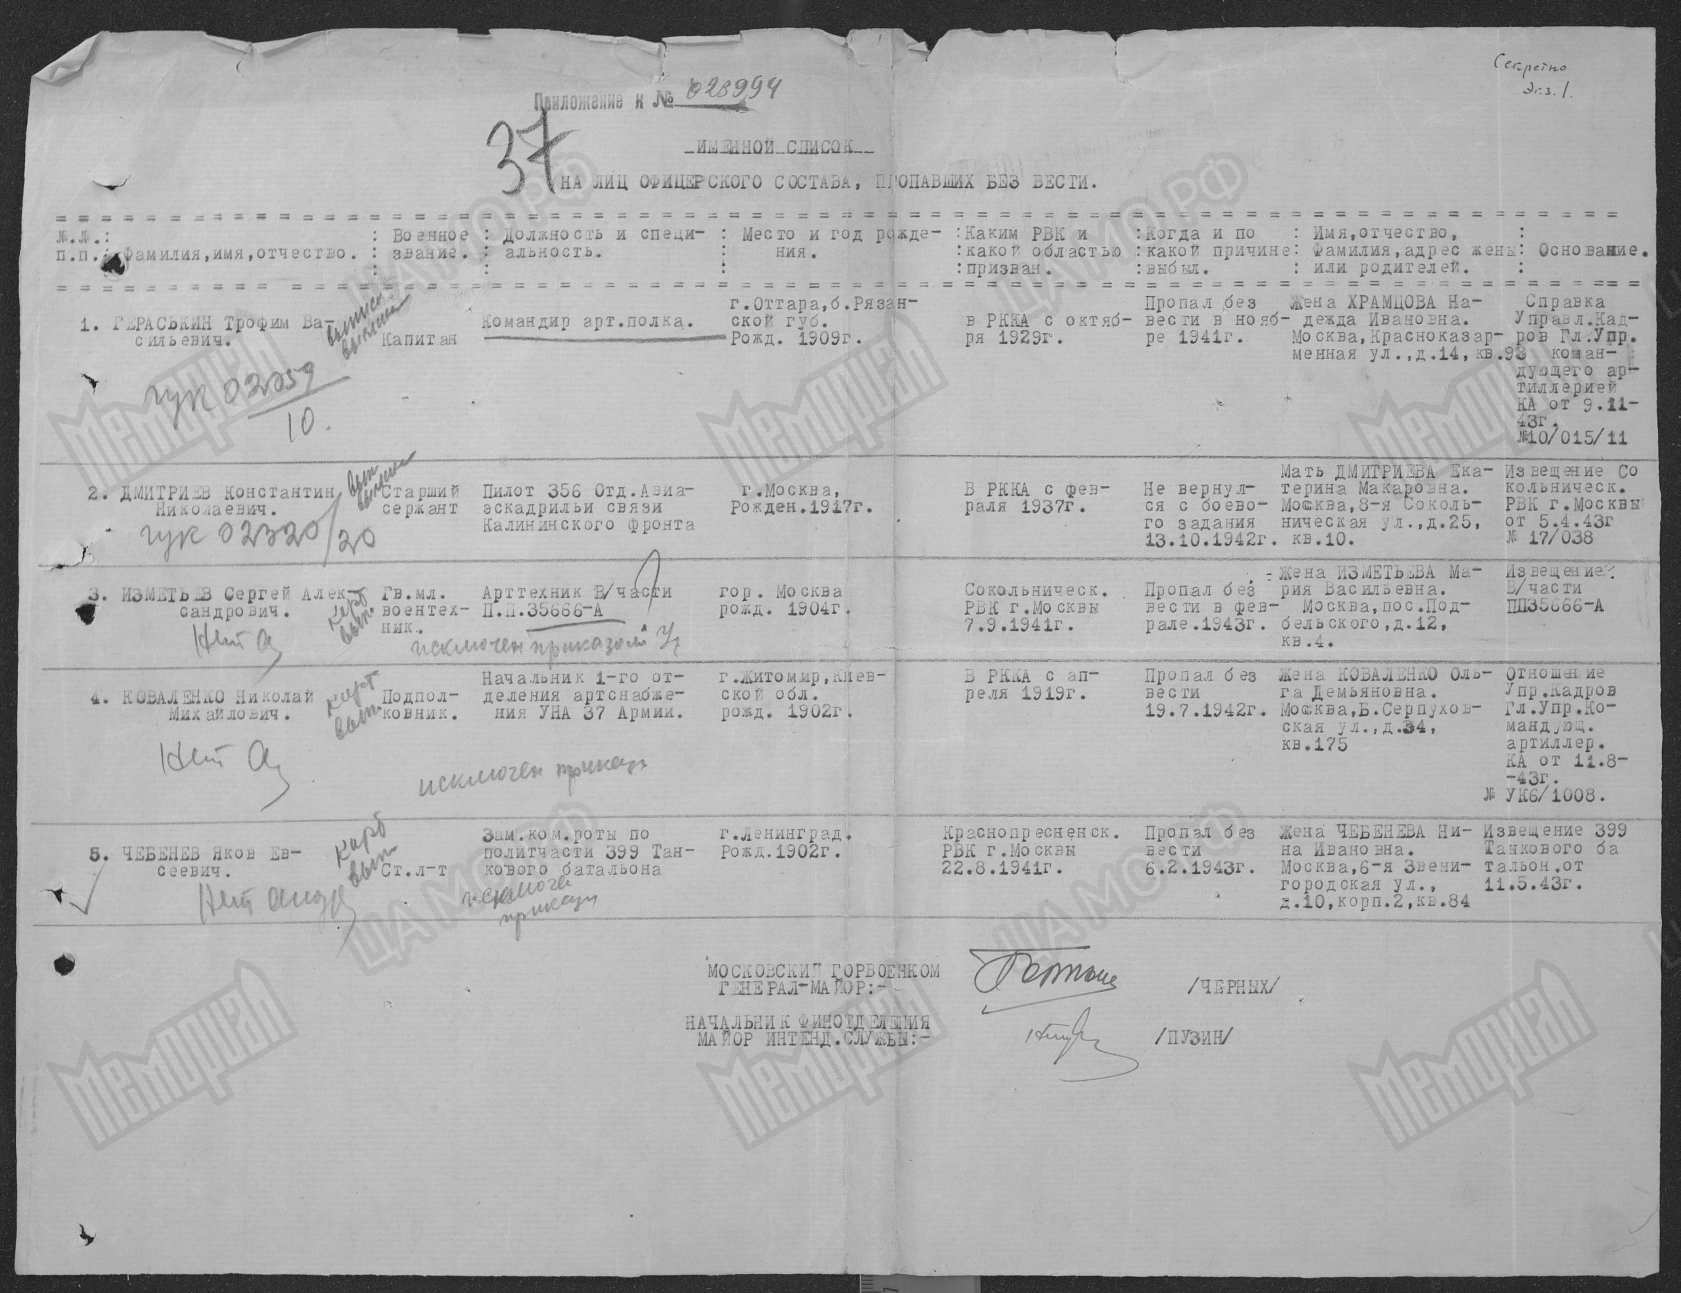 Секретно
Экз. 1.
Приложение к № 028994
37
ИМЕННОЙ СПИСОК
НА ЛИЦ ОФИЦЕРСКОГО СОСТАВА, ПРОПАВШИХ БЕЗ ВЕСТИ.
№.№.: п.п.: Фамилия,имя,отчество. : Военное звание. : Должность и специальность. : Место и год рожде-ния. : Каким РВК и какой областью призван. : Когда и по какой причине выбыл. : Имя,отчество, Фамилия,адрес жены или родителей. : Основание.
1. ГЕРАСЬКИН Трофим Ва-
сильевич.
Капитан
Командир арт.полка.
г.Оттара,б.Рязан-
ской губ.
Рожд. 1909г.
в РККА с октяб-
ря 1929г.
Пропал без
вести в нояб-
ре 1941г.
Жена ХРАМЦОВА На-
дежда Ивановна.
Москва,Красноказар-
менная ул.,д.14,кв.93
Справка
Управл.Кад-
ров Гл.Упр.
коман-
дующего ар-
тиллерией
КА от 9.11-
43г.
№10/015/11
гук 02059
10.
2. ДМИТРИЕВ Константин
Николаевич.
Старший
сержант
Пилот 356 Отд.Авиа-
эскадрильи связи
Калининского фронта
г.Москва,
Рожден.1917г.
В РККА с фев-
раля 1937г.
Не вернул-
ся с боево-
го задания
13.10.1942г.
Мать ДМИТРИЕВА Ека-
терина Макаровна.
Москва,8-я Соколь-
ническая ул.,д.25,
кв.10.
Извещение Со
кольническ.
РВК г.Москвы
от 5.4.43г
№ 17/038
гук 02320/20
3. ИЗМЕТЬЕВ Сергей Алек-
сандрович.
Гв.мл.
воентех-
ник.
Арттехник В/части
П.П.35666-А
гор. Москва
рожд. 1904г.
Сокольническ.
РВК г.Москвы
7.9.1941г.
Пропал без
вести в фев-
рале.1943г.
Жена ИЗМЕТЬЕВА Ма-
рия Васильевна.
Москва,пос.Под-
бельского,д.12,
кв.4.
Извещение
В/части
ПП35666-А
карт
вып.
исключен приказом
4. КОВАЛЕНКО Николай
Михайлович.
Подпол-
ковник.
Начальник 1-го от-
деления артснабже-
ния УНА 37 Армии.
г.Житомир,Киев-
ской обл.
рожд. 1902г.
В РККА с ап-
реля 1919г.
Пропал без
вести
19.7.1942г.
Жена КОВАЛЕНКО Оль-
га Демьяновна.
Москва,Б.Серпухов-
ская ул.,д.34,
кв.175
Отношение
Упр.Кадров
Гл.Упр.Ко-
мандующ.
артиллер.
КА от 11.8-
-43г.
№ УК6/1008.
карт
вып.
исключен приказ
5. ЧЕБЕНЕВ Яков Ев-
сеевич.
Ст.л-т
Зам.ком.роты по
политчасти 399 Тан-
кового батальона
г.Ленинград.
Рожд.1902г.
Краснопресненск.
РВК г.Москвы
22.8.1941г.
Пропал без
вести
6.2.1943г.
Жена ЧЕБЕНЕВА Ни-
на Ивановна.
Москва,6-я Звени-
городская ул.,
д.10,корп.2,кв.84
Извещение 399
Танкового ба
тальон.от
11.5.43г.
МОСКОВСКИЙ ГОРВОЕНКОМ
ГЕНЕРАЛ-МАЙОР:-
/ЧЕРНЫХ/
НАЧАЛЬНИК ФИНОТДЕЛЕНИЯ
МАЙОР ИНТЕНД.СЛУЖБЫ:-
/ПУЗИН/
Мемориал
ЦАМО РФ